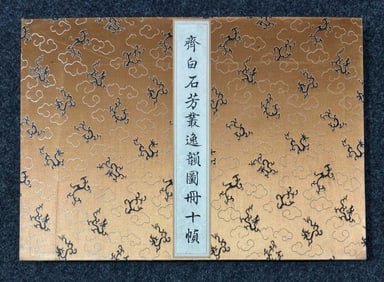 齊白石芳叢逸韻圖冊十幀